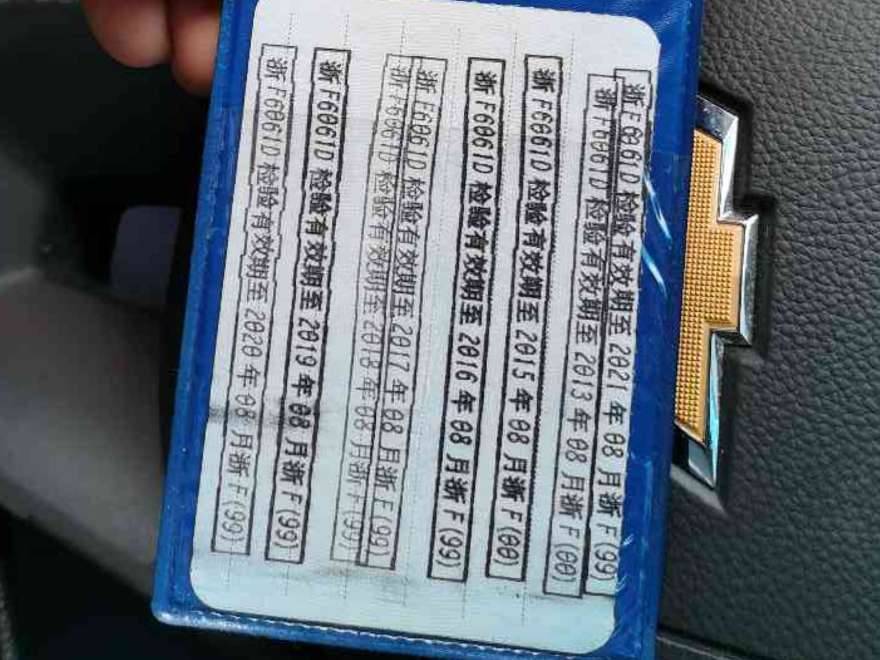 浙F6061D 检验有效期至 2021 年 08 月浙F(99)
浙F6061D 检验有效期至 2013 年 08 月浙F(00)
浙F6061D 检验有效期至 2015 年 08 月浙F(00)
浙F6061D 检验有效期至 2016 年 08 月浙F(99)
浙F6061D 检验有效期至 2017 年 08 月浙F(99)
浙F6061D 检验有效期至 2018 年 08 月浙F(99)
浙F6061D 检验有效期至 2019 年 08 月浙F(99)
浙F6061D 检验有效期至 2020 年 08 月浙F(99)